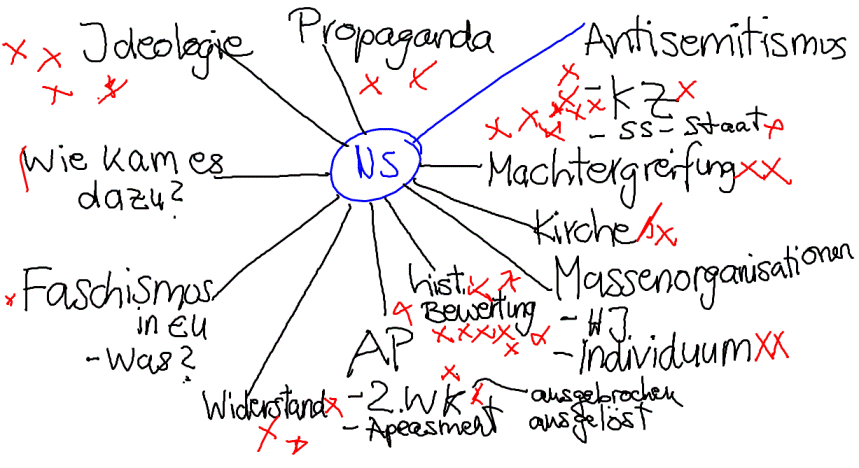 Ideologie
Propaganda
Antisemitismus
- KZ
- SS-Staat
NS
Wie kam es
dazu?
Machtergreifung
Kirche
Massenorganisationen
- HJ
- Individuum
Faschismus
in EU
- Was?
hist.
Bewertung
AP
- 2. WK
- Apeasment
ausgebrochen
ausgelöst
Widerstand